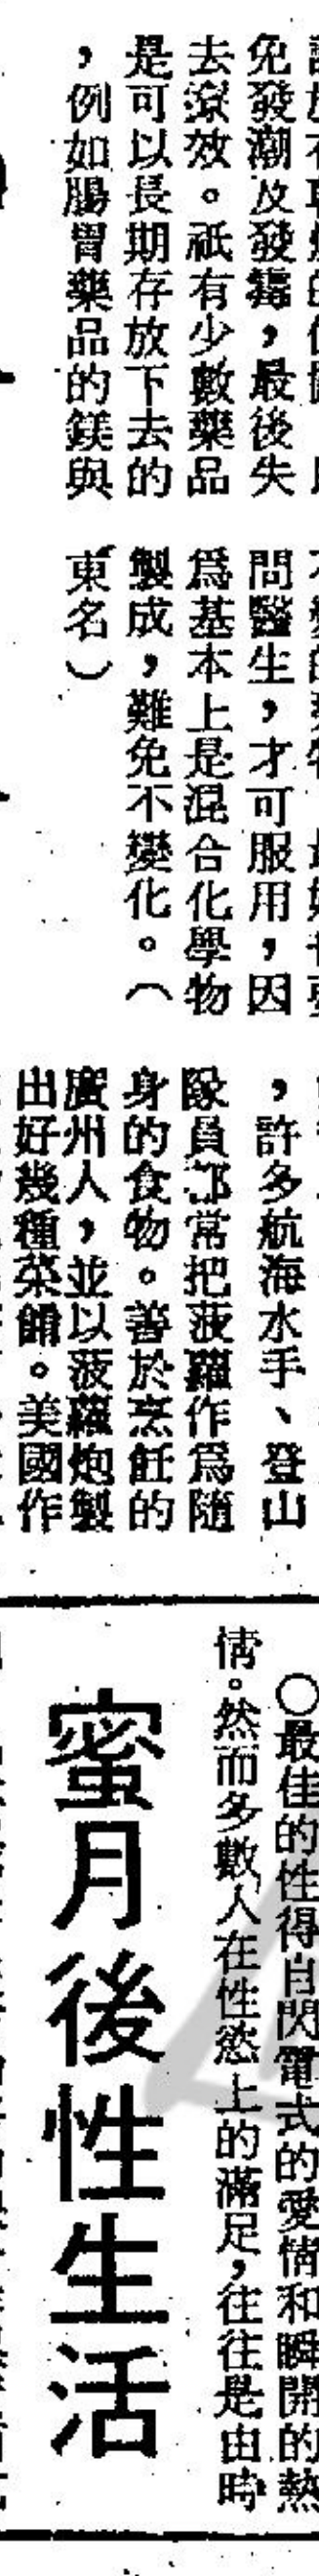 免發潮及發霉,最後失
去療效。祇有少數藥品
是可以長期存放下去的
,例如腸胃藥品的鎂與
問醫生,才可服用,因
爲基本上是混合化學物
製成,難免不變化。(
東名)
,許多航海水手、登山
隊員都常把菠蘿作爲隨
身的食物。善於烹飪的
廣州人,並以菠蘿炮製
出好幾種菜餚。美國作
○最佳的性得自閃電式的愛情和瞬開的熱
情。然而多數人在性慾上的滿足,往往是由時
蜜月後性生活